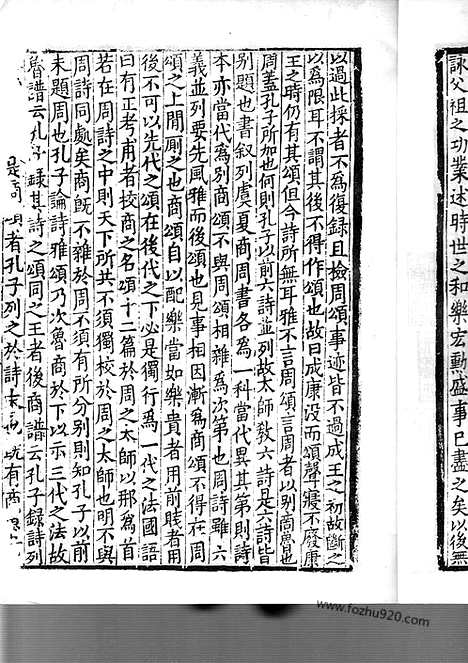 詠父祖之功業述時世之和樂宏勳盛事已盡之矣以後無
以過此採者不為復錄且檢周頌事迹皆不過成王之初故斷之
以為限耳不謂其後不得作頌也故曰成康沒而頌聲寢不廢康
王之時仍有其頌但今詩所無耳雅不言周頌言周者以別商魯也
周蓋孔子所加也何則孔子以前六詩並列故太師教六詩是六詩皆
別題也書敘列虞夏商周書各為一科當代異其第則詩
本亦當代為別商頌不與周頌相雜為次第也周詩雖六
義並列要先風雅而後頌也見事相因漸為商頌不得在周
頌之上間厠之也商頌自以配樂當如樂貴者用前賤者用
後不可以先代之頌在後代之下必是獨行為一代之法國語
曰有正考甫者校商之名頌十二篇於周之太師以那為首
若在周詩之中則天下所共不須獨校於周之太師也明不與
周詩同處矣商旣不雜於周不須有所分別則知孔子以前
未題周也孔子論詩雅頌乃次魯商於下以示三代之法故
魯譜云孔子錄其詩之頌同之王者後商譜云孔子錄詩列
www.fozhu920.com